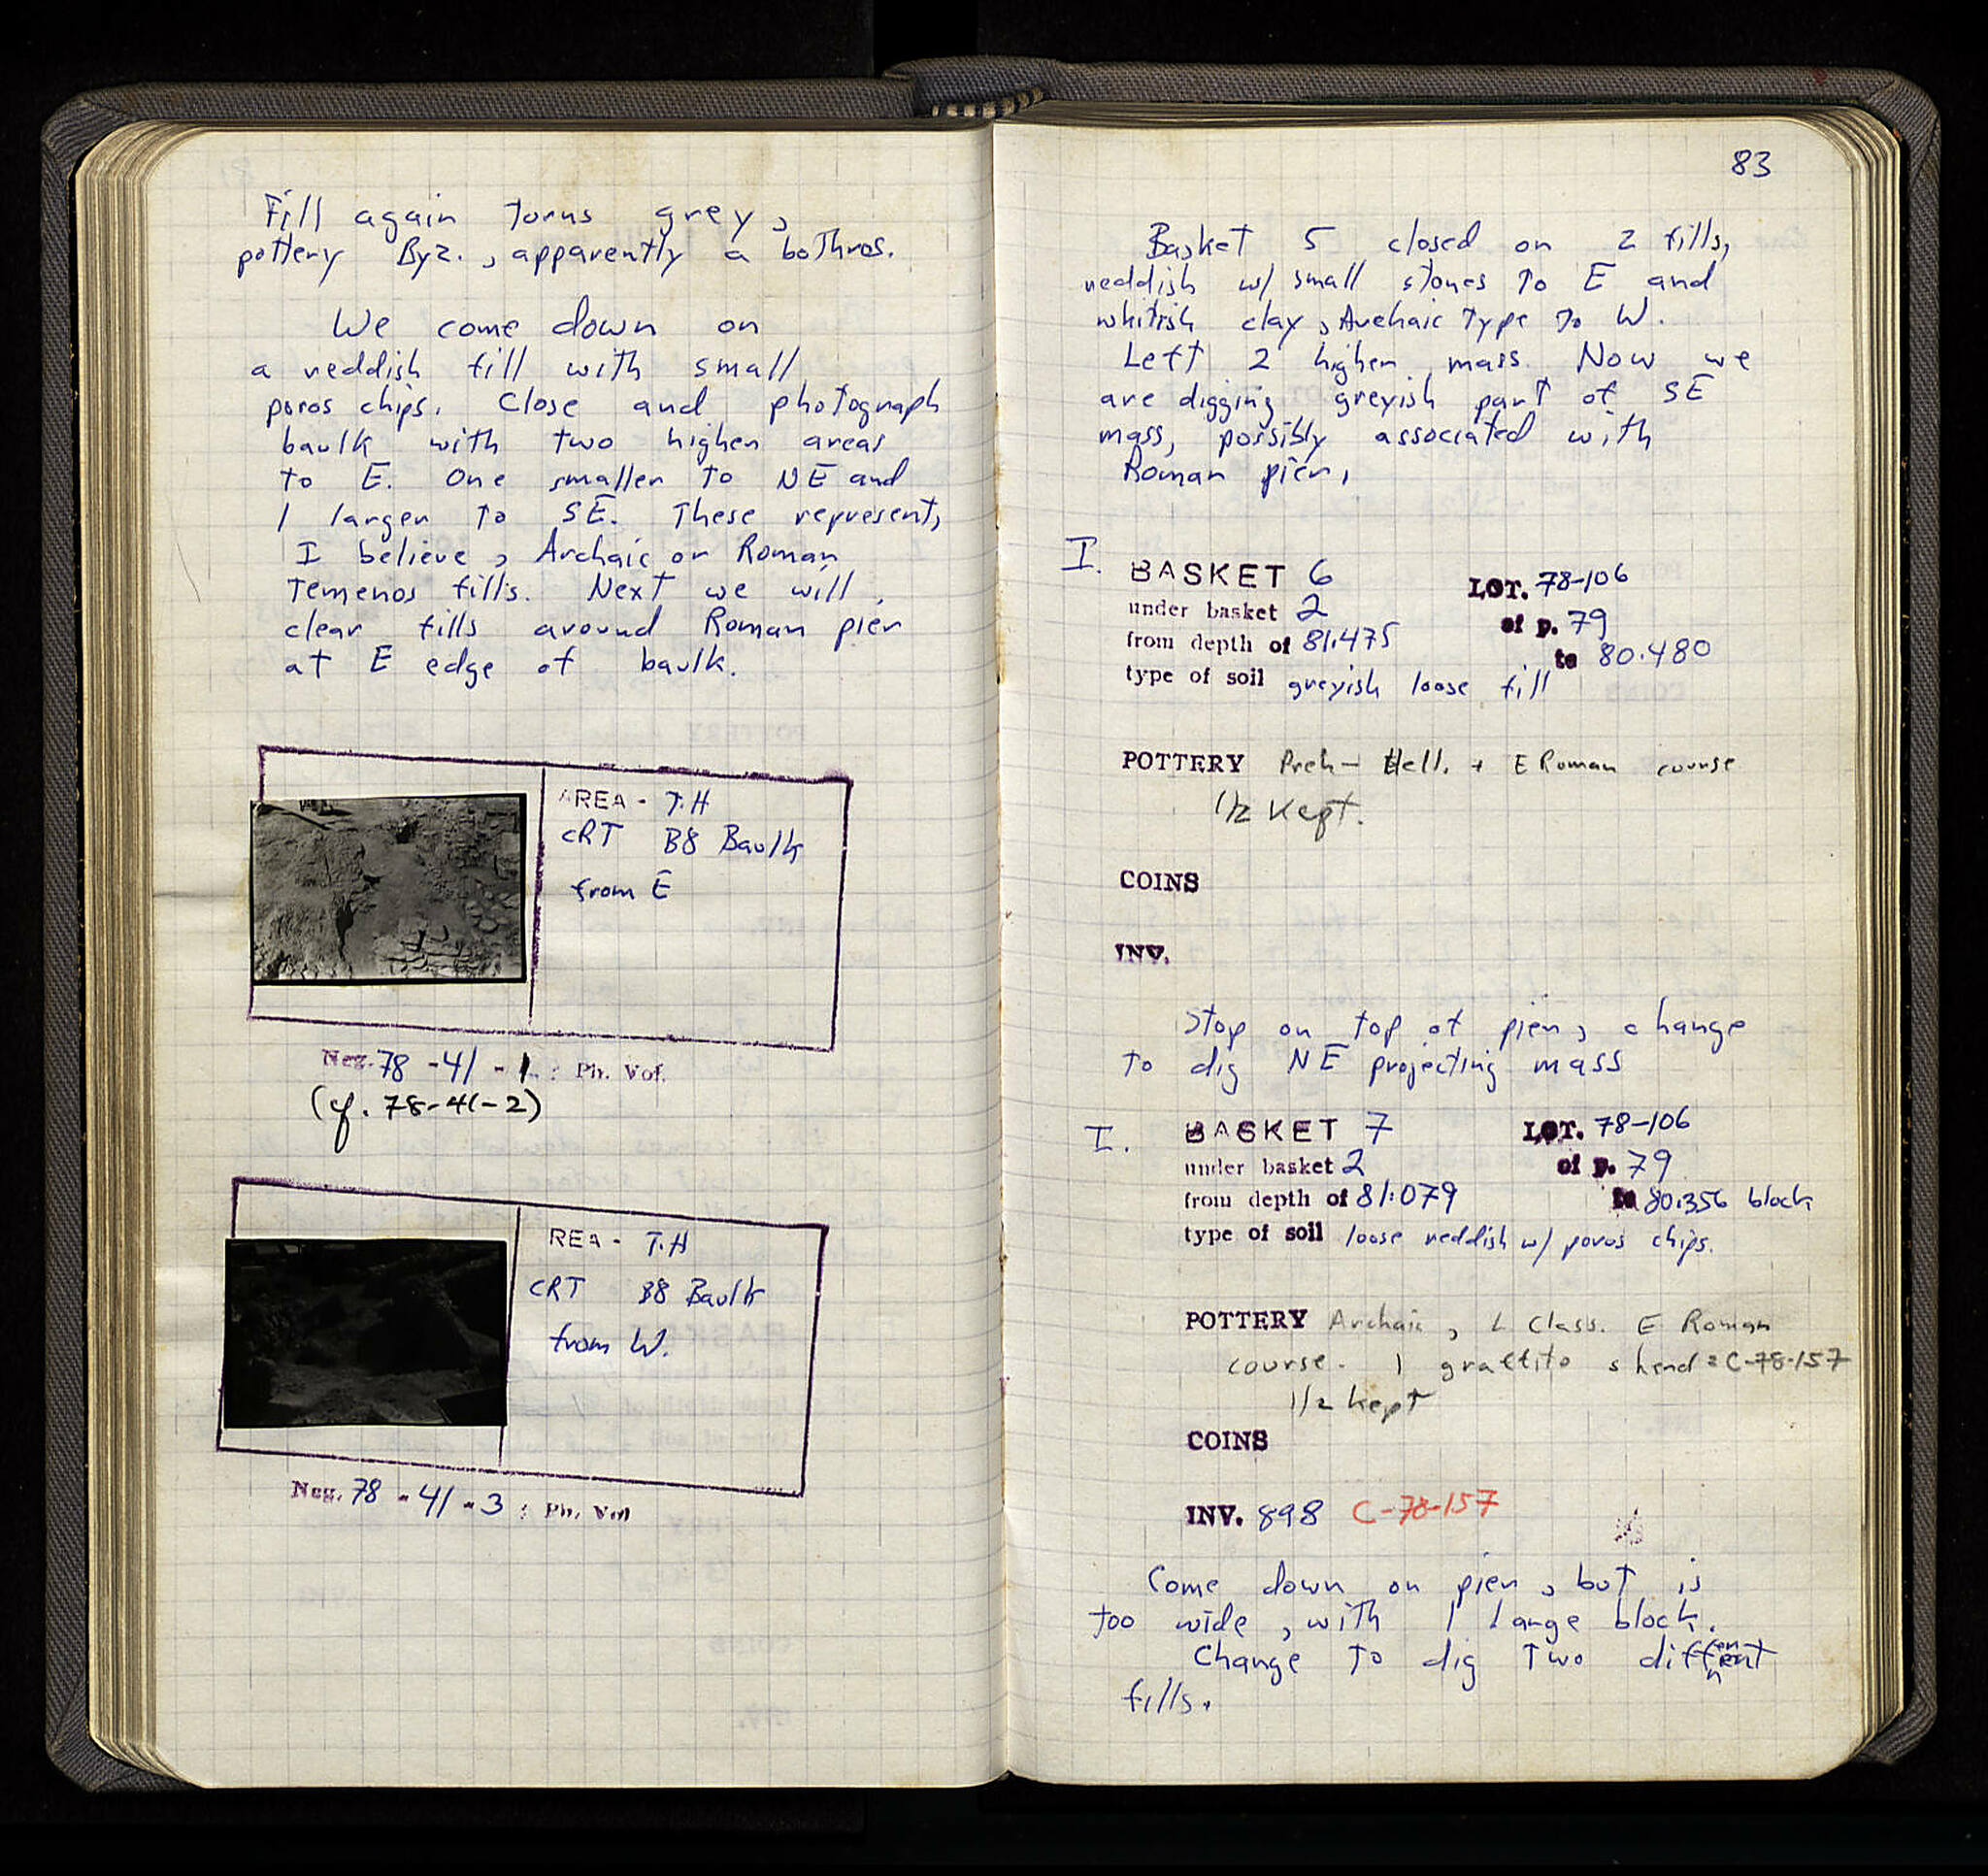 Fill again turns grey,
pottery Byz., apparently a bothros.
We come down on
a reddish fill with small
poros chips. Close and photograph
baulk with two higher areas
to E. One smaller to NE and
1 larger to SE. These represent,
I believe, Archaic or Roman
Temenos fills. Next we will
clear fills around Roman pier
at E edge of baulk.
AREA - T.H
CRT B8 Baulk
from E
Neg. 78 - 41 - 1 : Ph. Vof.
(cf. 78-41-2)
REA - T.H
CRT B8 Baulk
from W.
Neg. 78 - 41 - 3 : Ph. Vol
83
Basket 5 closed on 2 fills,
reddish w/ small stones to E and
whitish clay, Archaic type to W.
Left 2 higher mass. Now we
are digging greyish part of SE
mass, possibly associated with
Roman pier,
I. BASKET 6 LOT. 78-106
under basket 2 of p. 79
from depth of 81.475 to 80.480
type of soil greyish loose fill
POTTERY Preh - Hell. + E Roman course
1/2 Kept.
COINS
INV.
Stop on top of pier, change
to dig NE projecting mass
I. BASKET 7 LOT. 78-106
under basket 2 of p. 79
from depth of 81.079 to 80.356 block
type of soil loose reddish w/ poros chips.
POTTERY Archaic, L Class. E Roman
course. 1 graffito sherd = C-78-157
1/2 kept
COINS
INV. 898 C-78-157
Come down on pier, but is
too wide, with 1 large block.
Change to dig two different
fills.